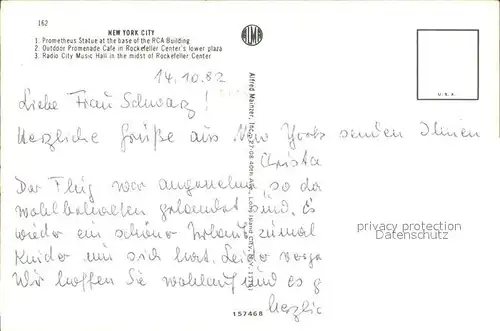 162
NEW YORK CITY
1. Prometheus Statue at the base of the RCA Building
2. Outdoor Promenade Cafe in Rockefeller Center's lower plaza
3. Radio City Music Hall in the midst of Rockefeller Center
ALMA
U.S.A.
14.10.82
Liebe Frau Schwarz!
Herzliche Grüße aus New York senden Ihnen
Christa
Der Flug war angenehm, so da
wohlbehalten gelandet sind. Es
wieder ein schöner Urlaub zumal
Kinder mit sich hat. Leider verge
Wir hoffen Sie wohlauf und es g
Herzlic
Alfred Mainzer, Inc.
157468
privacy protection
Datenschutz